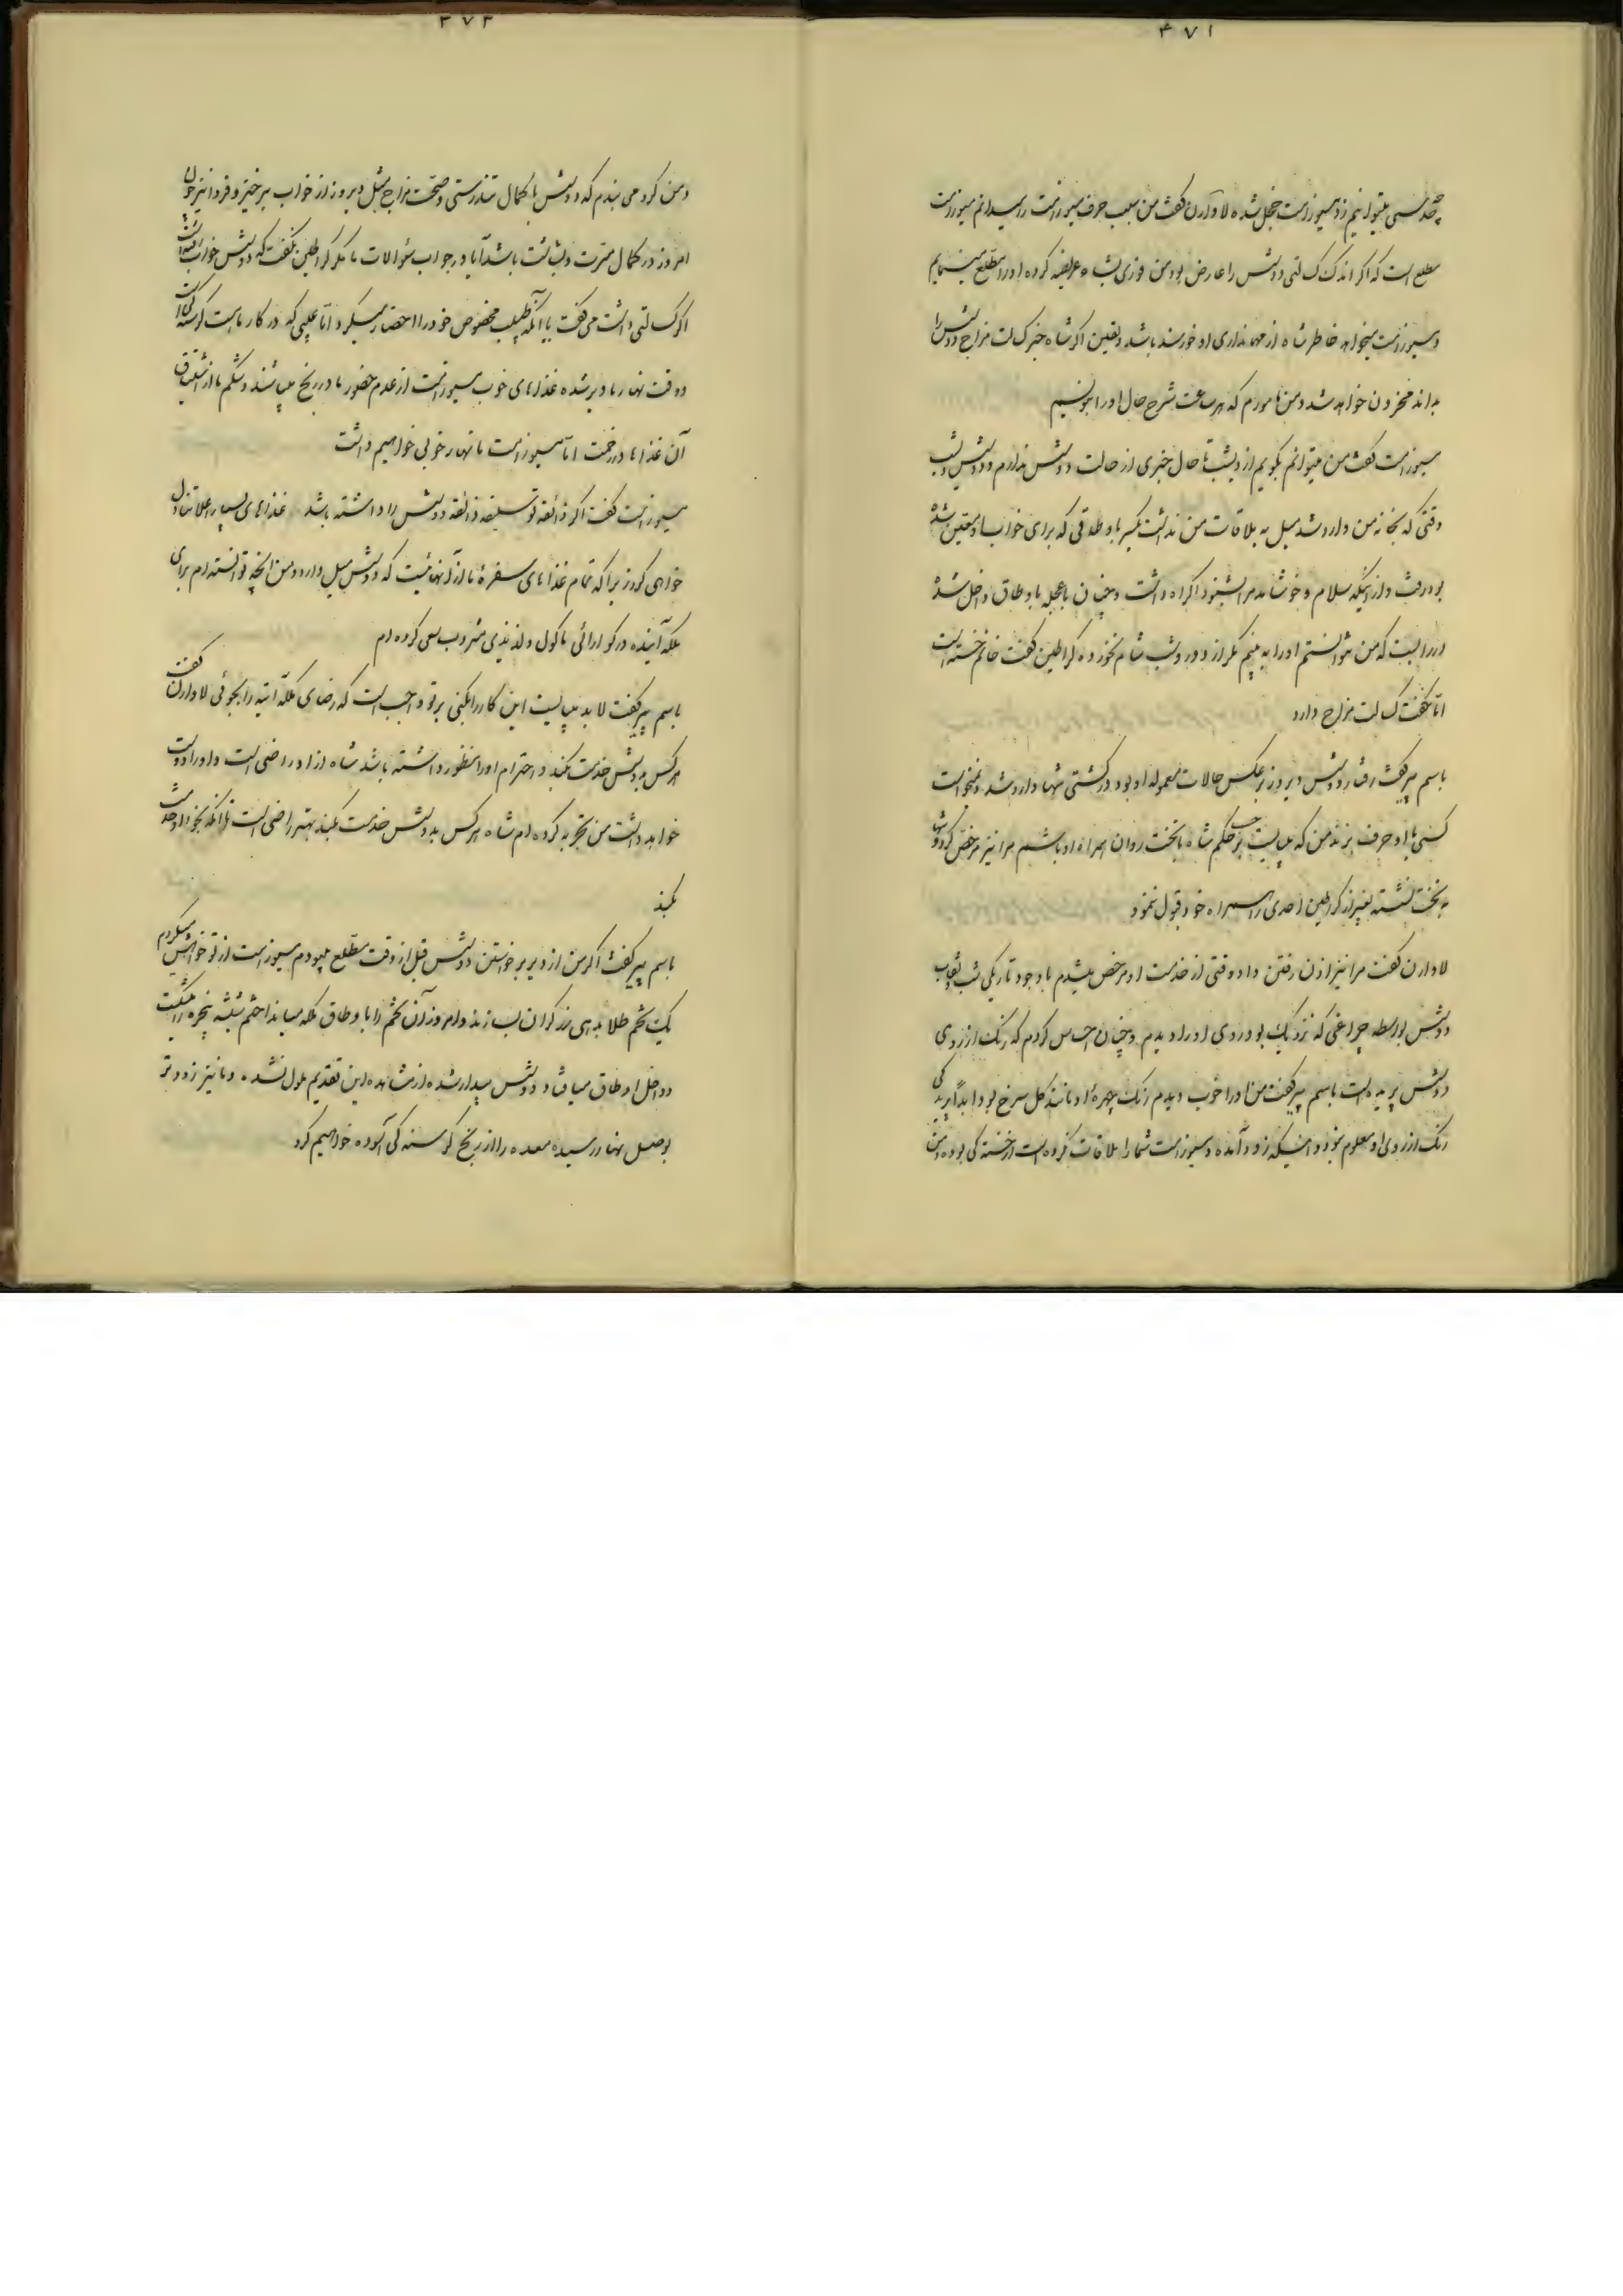 ۴۷۱
چه حدسی میتوانیم زد مسیو زامت خجل شده لاوارن گفت من سبب حرف مسیو زامت را میدانم مسیو زامت
مطلع است که اگر اندک کسالتی دوشس را عارض بود من فوری بشاه عریضه کرده او را مطلع مینمایم
و مسیو زامت میخواهد خاطر شاه از مهمانداری او خورسند باشد و یقین اگر شاه خبر کسالت مزاج دوشس را
بداند محزون خواهد شد و من مامورم که هر ساعت شرح حال او را بنویسم
مسیو زامت گفت من میتوانم بگویم از دیشب تا حال خبری از حالت دوشس ندارم و دوشس دیشب
وقتی که بخانه من وارد شد میل به ملاقات من نداشت یکسر باوطاقی که برای خواب او معین شده
بود رفت و از اینکه سلام و خوشامد مرا بشنود اکراه داشت و چنان با عجله باوطاق داخل شد
که من نتوانستم او را به بینم مگر از دور و شب شام نخورده گراطین گفت خانم خسته است
اما نگفت کسالت مزاج دارد
باسم پیر گفت رفتار دوشس دیروز برعکس حالات معموله او بود در کشتی تنها وارد شد و نمیخواست
کسی با او حرف بزند من که میبایست برحسب حکم شاه با تخت روان همراه او باشم مرا نیز مرخص کرد و تنها
به تخت نشسته بغیر از گراطین احدی را همراه خود قبول ننمود
لاوارن گفت مرا نیز اذن رفتن داد وقتی از خدمت او مرخص میشدم با وجود تاریکی شب و نقاب
دوشس بواسطه چراغی که نزدیک بود روی او را دیدم و چنان احساس کردم که رنگ از روی
دوشس پریده است باسم پیر گفت من او را خوب دیدم رنگ چهره او مانند گل سرخ بود ابداً پریدگی
رنگ از روی او معلوم نبود و اینکه زود آمده و مسیو زامت شما را ملاقات نکرده است از خستگی بوده است
۴۷۲
و من گرو می بندم که دوشس با کمال تندرستی و صحت مزاج مثل دیروز از خواب برخیزد و فردا نیز چون
امروز در کمال مسرت و بشاشت باشد آیا در جواب سؤالات ما مگر گراطین نگفت که دوشس خواب است
اگر کسالتی داشت می گفت یا آنکه طبیب مخصوص خود را احضار میکرد اما عیبی که در کار ماست گرسنگی است
و وقت نهار ما دیر شده غذاهای خوب مسیو زامت از عدم حضور ما در رنج میباشند و شکم ما از اشتیاق
آن غذاها در زحمت اما مسیو زامت ما نهار خوبی خواهیم داشت
مسیو زامت گفت اگر ذائقه تو سلیقه ذائقه دوشس را داشته باشد غذاهای بسیار اعلا تناول
خواهی کرد زیرا که تمام غذاهای سفره ما از آنهائیست که دوشس میل دارد و من آنچه توانسته ام برای
ملکه آینده در گوارائی ماکول و لذیذی مشروب سعی کرده ام
باسم پیر گفت لابد میبایست این کار را بکنی بر تو واجب است که رضای ملکه آتیه را بجوئی لاوارن گفت
هر کس به دوشس خدمت کند و احترام او را منظور داشته باشد شاه از او راضی است و او را دوست
خواهد داشت من تجربه کرده ام شاه هر کس به دوشس خدمت بکند بهتر راضی است تا آنکه بخود او خدمت
بکند
باسم پیر گفت اگر من از دیر برخواستن دوشس قبل از وقت مطلع میبودم مسیو زامت از تو خواهش میکردم
یک تخم طلا بدهی زرگران بسازند و امروز آن تخم را باوطاق ملکه میانداختم شیشه پنجره را شکست
و داخل اوطاق میافتاد و دوشس بیدار شده از مشاهده این تقدیم ملول نشده و ما نیز زودتر
بوصل نهار رسیده معده را از رنج گرسنه گی آسوده خواهیم کرد